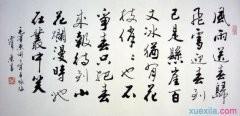 風雨送春歸
飛雪迎春到
已是懸崖百
丈冰猶有花
枝俏俏也不
爭春只把春
來報待到山
花爛漫時她
在叢中笑
xuexila.com